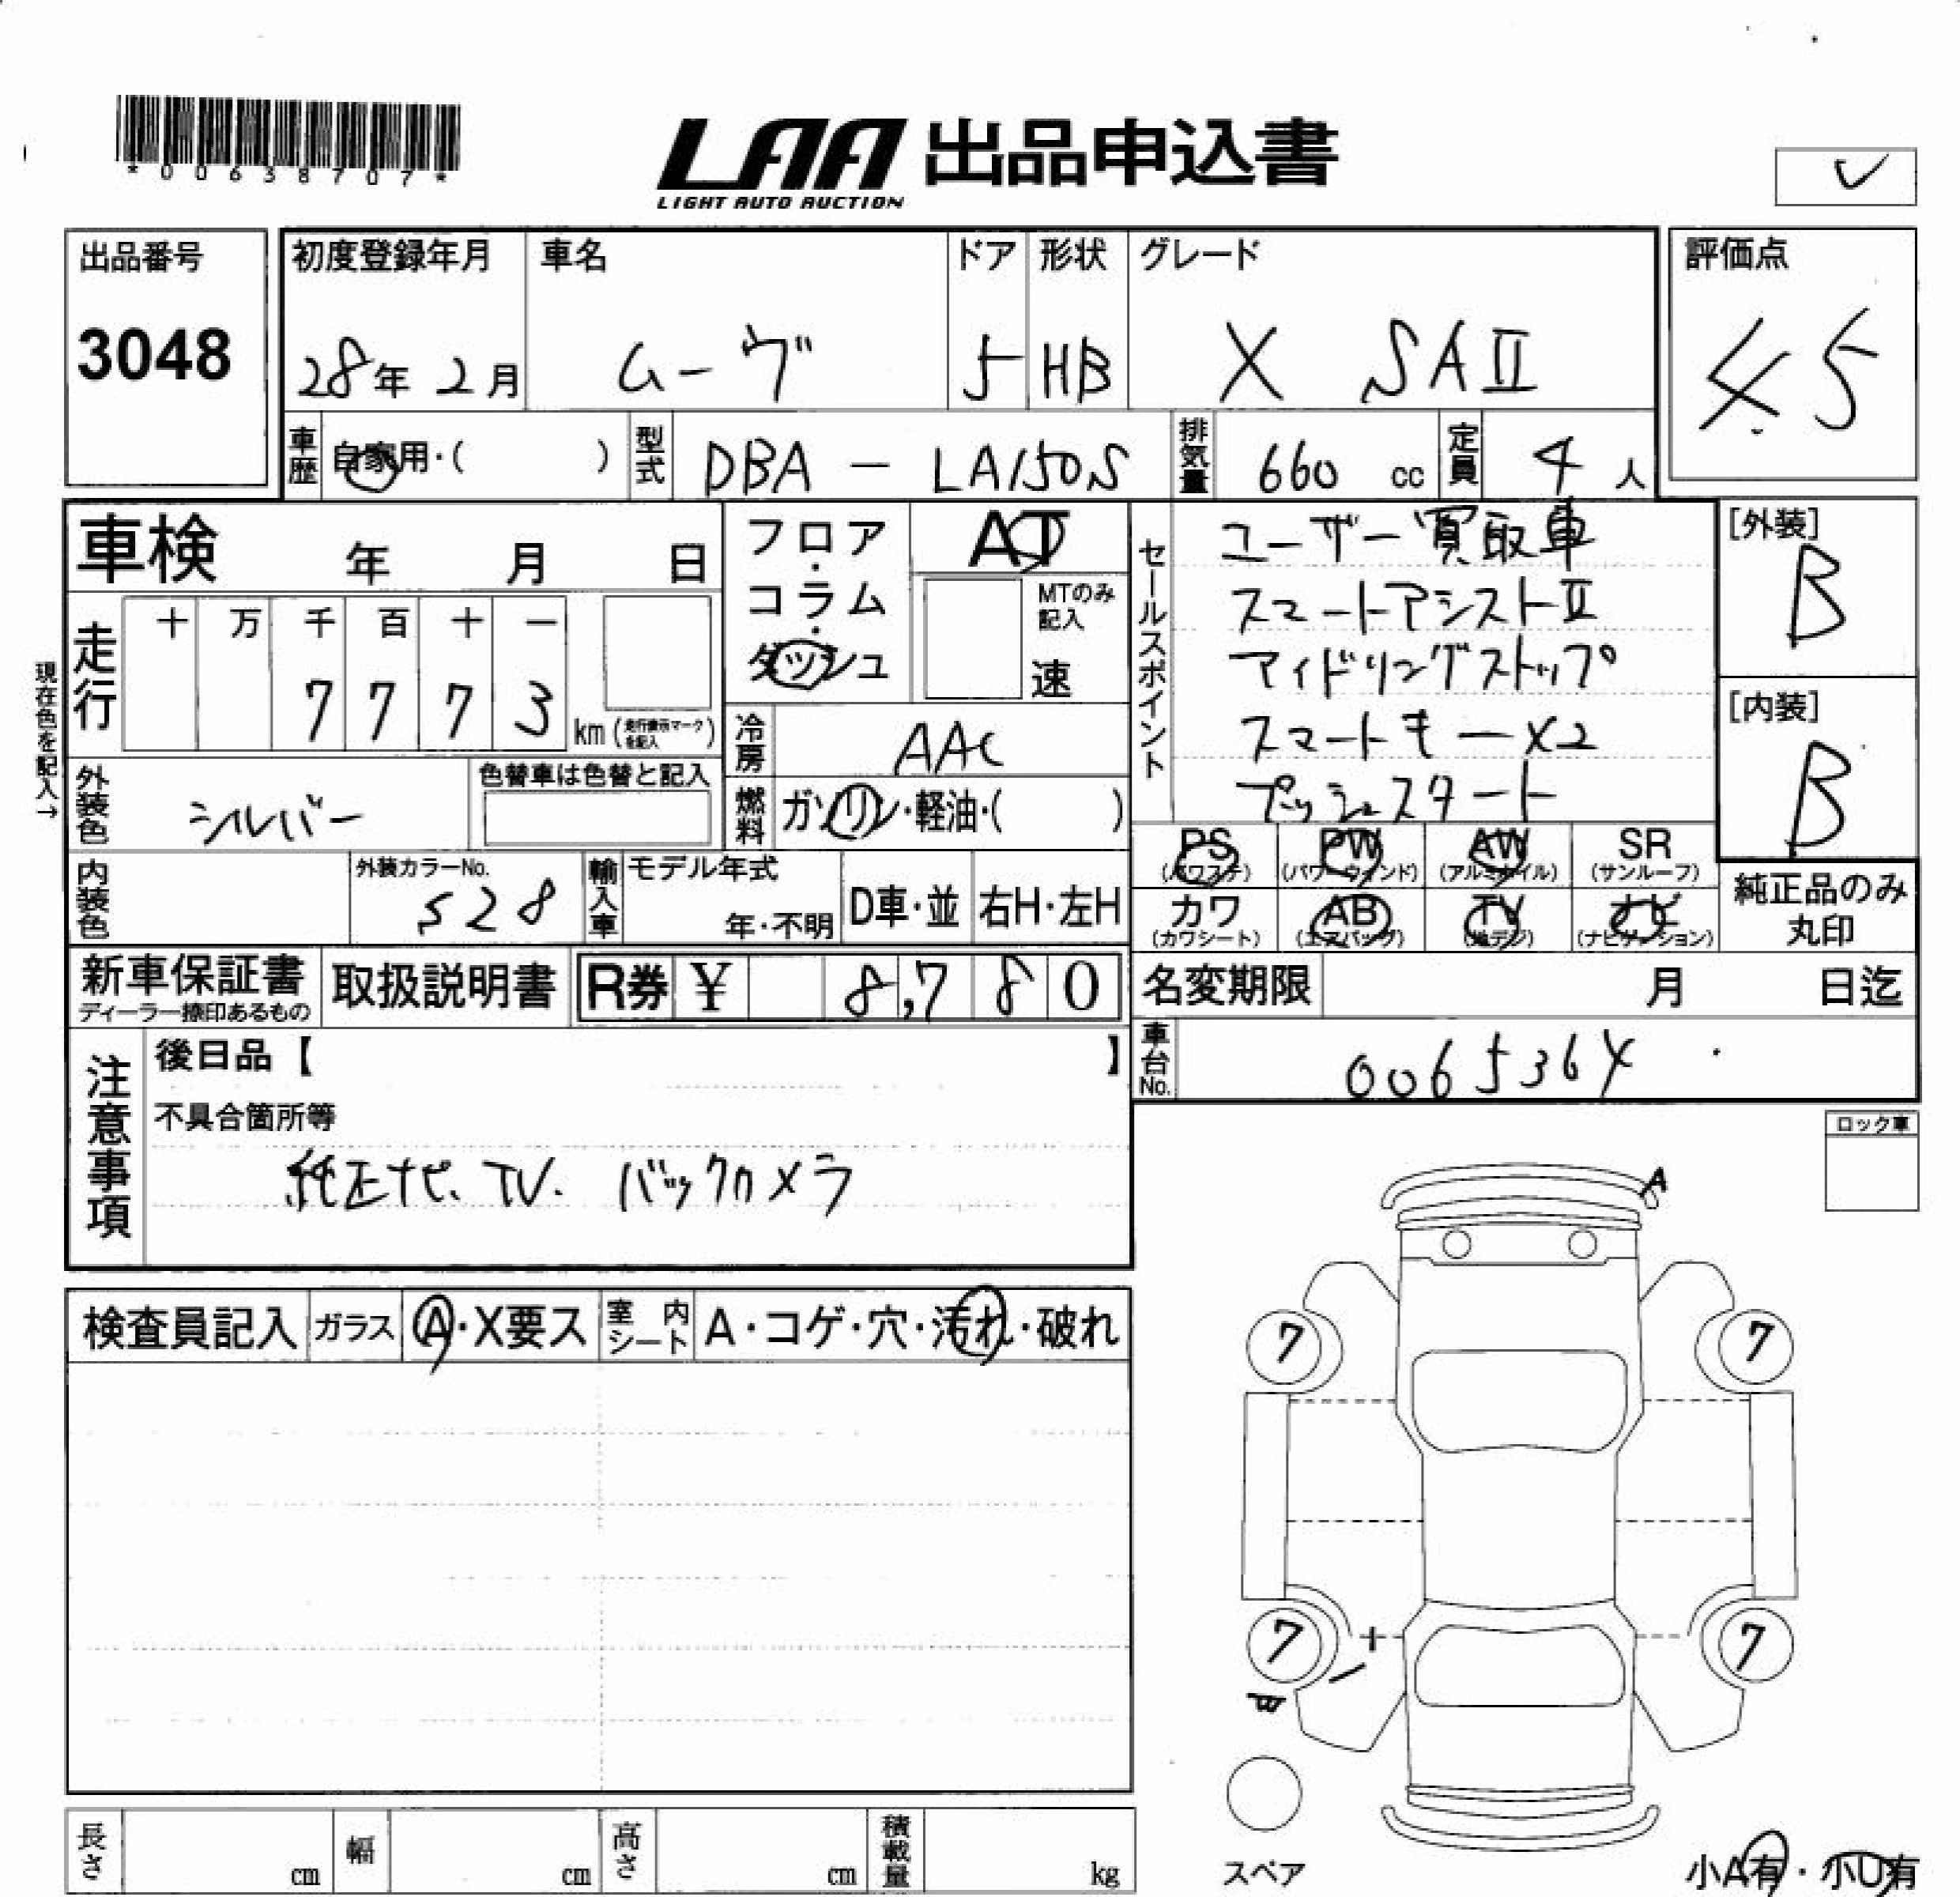 *00638707*
LAA 出品申込書
LIGHT AUTO AUCTION
✓
出品番号
3048
初度登録年月
28年 2月
車名
ムーヴ
ドア
5
形状
HB
グレード
X SAⅡ
評価点
4.5
車歴 自家用・( )
型式 DBA - LA150S
排気量 660 cc
定員 4 人
車検 年 月 日
フロア・コラム・ダッシュ
AT
MTのみ記入
速
走行
十 万 千 百 十 一
7 7 7 3
km (走行表示マークを記入)
現在色を記入→
冷房 AAC
燃料 ガソリン・軽油・( )
外装色 シルバー
色替車は色替と記入
内装色
外装カラーNo.
S28
輸入車
モデル年式
年・不明
D車・並
右H・左H
セールスポイント
ユーザー買取車
スマートアシストⅡ
アイドリングストップ
スマートキーX2
プッシュスタート
[外装]
B
[内装]
B
PS (パワステ)
PW (パワーウィンド)
AW (アルミホイル)
SR (サンルーフ)
カワ (カワシート)
AB (エアバッグ)
TV (地デジ)
ナビ (ナビゲーション)
純正品のみ
丸印
新車保証書
ディーラー捺印あるもの
取扱説明書
R券 ¥ 8,780
名変期限 月 日迄
車台No. 0065364
注意事項
後日品【 】
不具合箇所等
純正ナビ、TV. バックカメラ
ロック車
検査員記入
ガラス
A・X要ス
室内シート
A・コゲ・穴・汚れ・破れ
A
7
7
7
7
スペア
長さ cm
幅 cm
高さ cm
積載量 kg
小A有・小U有